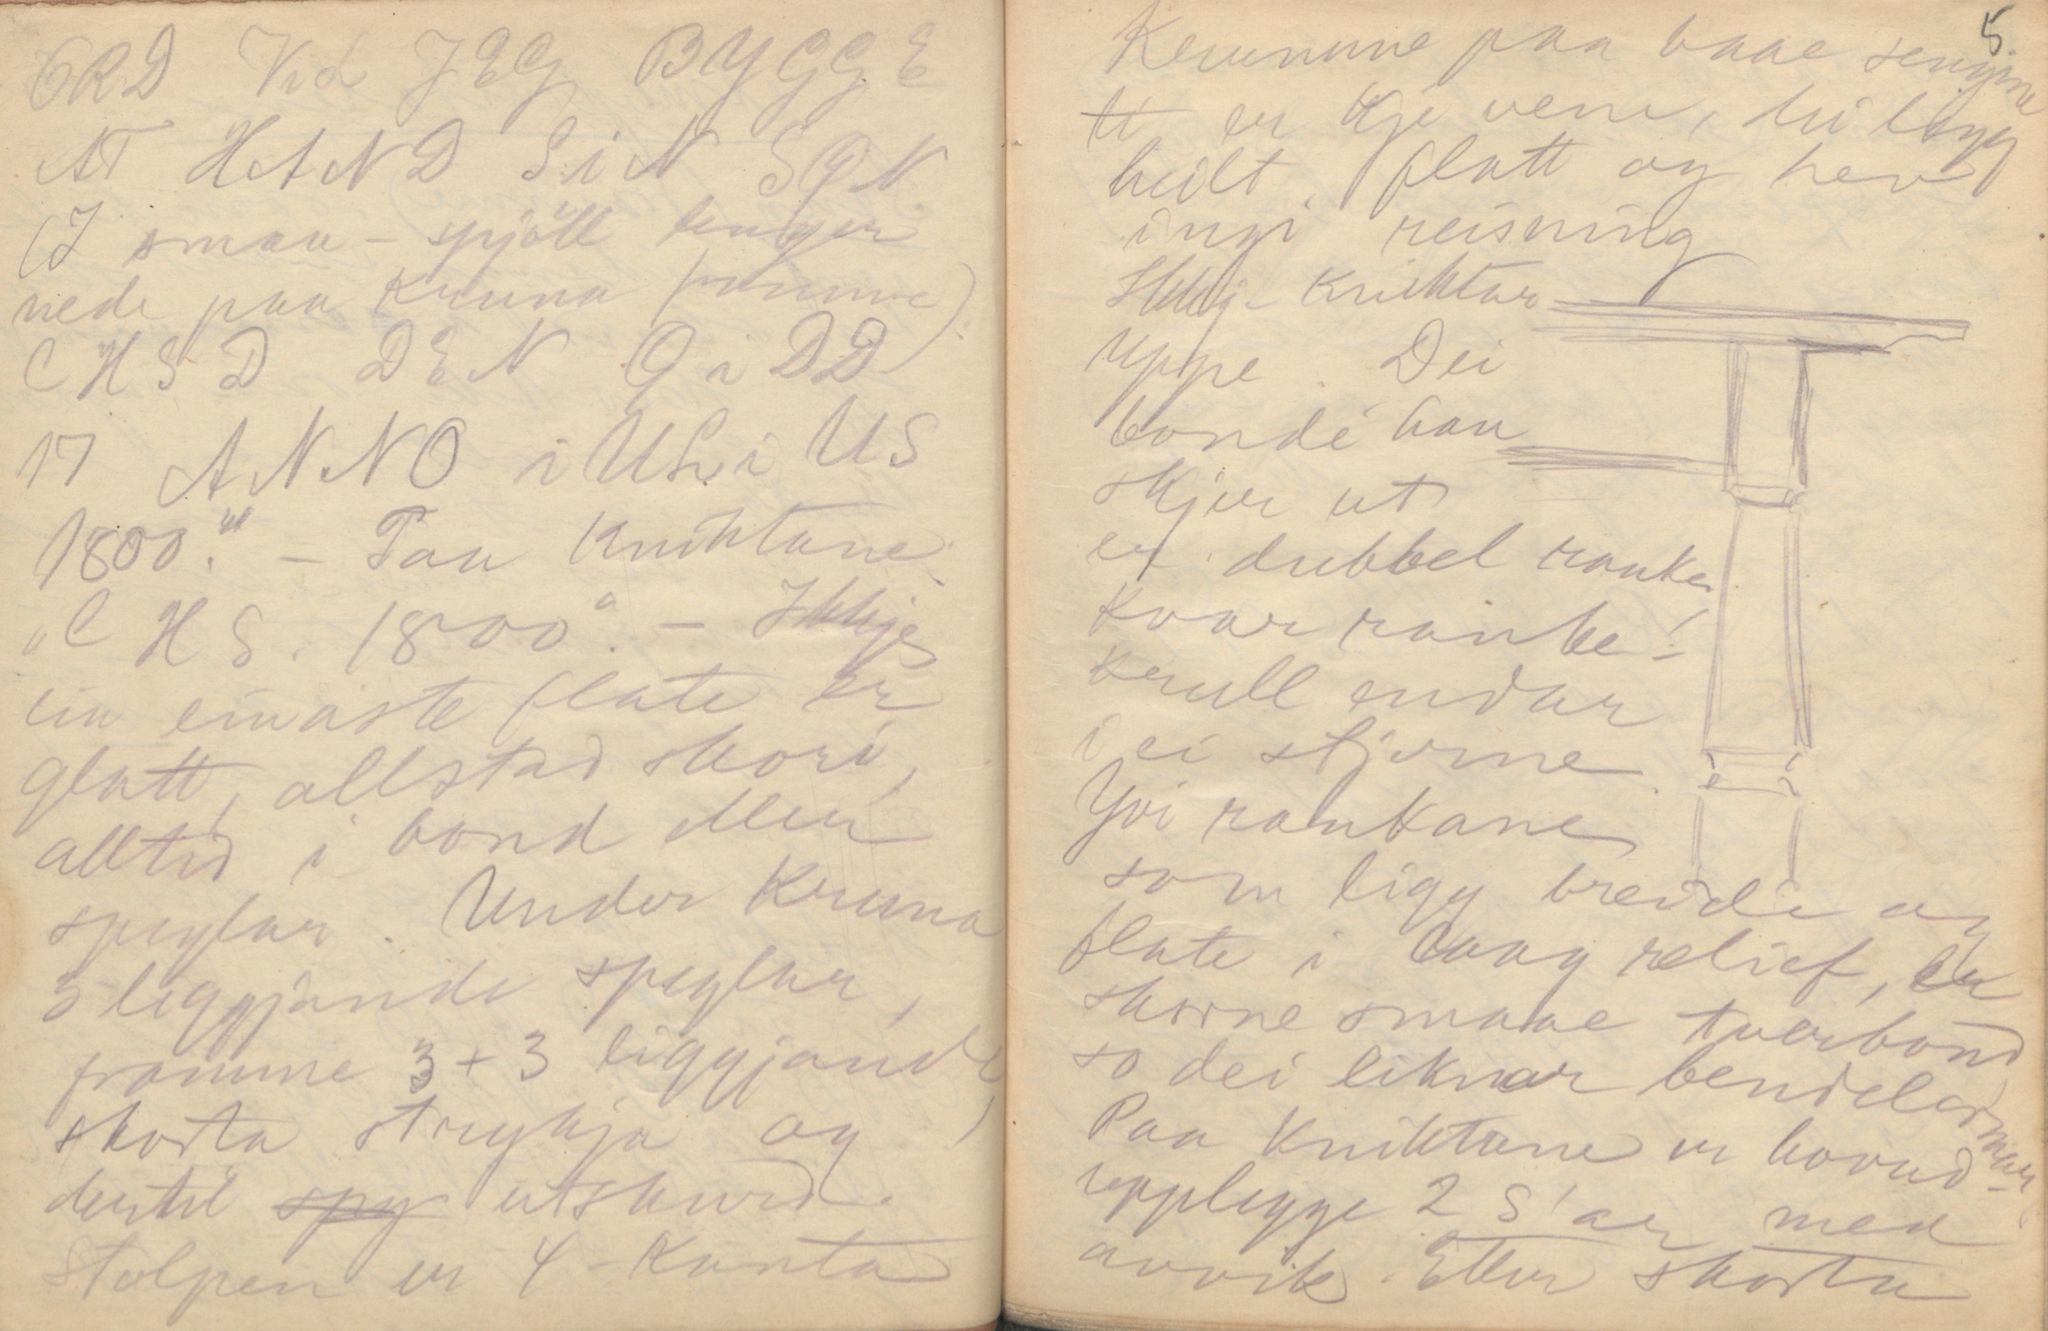 ORD ViL JEG BYGGE
AT HAND SiN SØN
(I smaa-spjöll lenger
nede paa Kruna framme)
CHSD DEN Ø i DD
17 ANNO iULiUS
1800." – Paa Kniktane
"C H S. 1800". – Ikkje
ein einaste flate er
glatt, allstad skori,
alltid i bond eller
speglar. Under Kruna
3 liggjande speglar,
framme 3 + 3 liggjande,
skorta strykja og
dertil spy utskurd.
Stolpen er 4-Kanta
5.
Krunune paa baae sengjine
tt er Kje vene, dei ligg
heilt flatt og hev
ingi reisning
Ikkj Kniktar
uppe. Dei
bondé han
skjer ut
er dubbel ranke,
Kvar ranke-
krull endar
i ei stjerne
Yvi rankane
som ligg breide og
flate i laag relief, er
skorne smaae tverbond
so dei liknar bendelormar
Paa Kniktane er hovud-
upplegge 2 S'ar med
avvik. Etter skorta